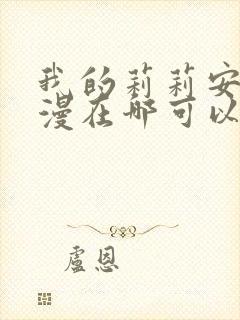 我的莉莉安
漫在哪可以
盧恩